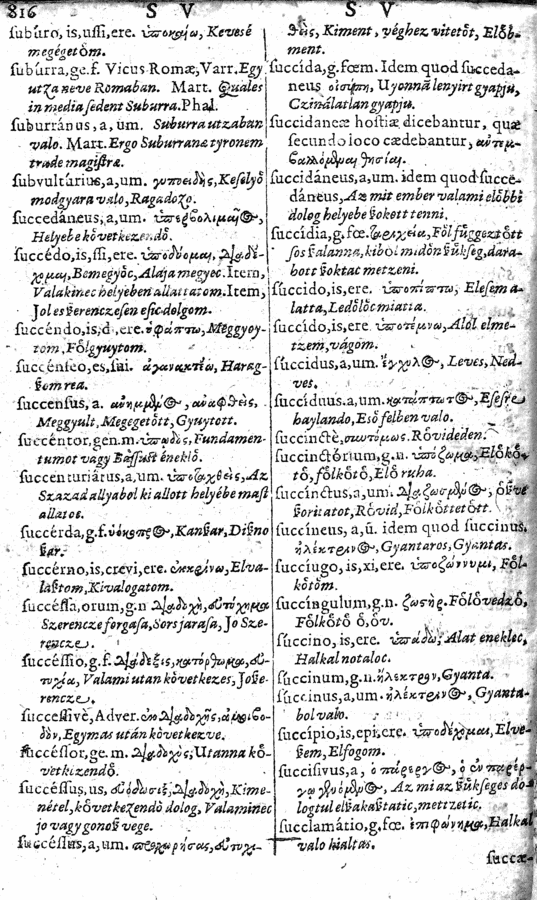 816 S V S V
subúro, is, ussi, ere. ὑποκαίω, Kevesé
megégetȍm.
suburra, ge.f. Vicus Romæ, Varr. Egy
utza neve Romaban. Mart. Quales
in media sedent Suburra. Phal.
suburránus, a, um. Suburra utzaban
valo. Mart. Ergo Suburranæ tyronem
trade magistræ.
subvultúrius, a, um. γυποειδὴς, Keselyȍ
modgyara valo, Ragadozo.
succedáneus, a, um.
Helyebe kȍvetkezendȍ.
succédo, is, ssi, ere. ὑποδύομαι, διαδέ-
χομαι, Bemegyȍc, Alaja megyec. Item,
Valakinec helyeben allattatom. Item,
Jol es ßerenczesen esic dolgom.
succéndo, is, d, ere. ὑφάπτω, Meggyoy-
tom, Fȍlgyuytom.
succénseo, es, sui. ἀγανακτέω, Harag-
ßom rea.
succensus, a. ἀναφθεὶς,
Meggyult, Megegetȍtt, Gyuytott.
succéntor, gen.m. ὑπῳδὸς, Fundamen-
tumot vagy Baßust éneklȍ.
succenturiátus, a, um. ὑποταχθεὶς, Az
Szazad allyabol ki allott helyébe mast
allatos.
succérda, g.f. Kanßar, Dißno
ßar.
succérno, is, crevi, ere. ἐκκρίνω, Elva-
laßtom, Kivalogatom.
succéssa, orum, g.n Διαδοχὴ, εὐτύχημα
Szerencze forgasa, Sors jarasa, Jo Sze-
rencze.
succéssio, g.f. Διάδεξις, κατόρθωμα, εὐ-
τυχία, Valami utan kȍvetkezes, Joße-
rencze.
successivè, Adver. ἐκ Διαδοχῆς, ἀμοιβα-
δὸν, Egymas után kȍvetkezve.
succéssor, ge.m. Διαδοχὸς, Utanna kȍ-
vetkizendȍ.
succéssus, us, εὐόδωσις, Διαδοχὴ, Kime-
nétel, kȍvetkezendȍ dolog, Valaminec
jo vagy gonoß vege.
succéssus, a, um. προχωρήσας, εὐτυχη-
θεὶς, Kiment, véghez vitetȍt, Elȍb-
ment.
succída, g.fœm. Idem quod succeda-
neus οἰσύπη, Uyonnā lenyirt gyapju,
Czinálatlan gyapju.
succidaneæ hostiæ dicebantur, quæ
secundo loco cædebantur,
succidáneus, a, um. idem quod succe-
dáneus, Az mit ember valami elȍbbi
dolog helyebe ßokott tenni.
succídia, g.fœ. Fȍl fűggeztȍtt
sos ßalanna, kibȍl midȍn ßűkseg, dara-
bott ßoktac metzeni.
succido, is, ere. ὑποπίπτω, Elesem a-
latta, Ledȍlȍc miatta.
succído, is, ere. ὑποτέμνω, Alȍl elme-
tzem, vágom.
súccidus, a, um. Leves, Ned-
ves.
succíduus. a, um. Esesre
haylando, Esȍ felben valo.
succinctè, συντόμως. Rȍvideden.
succinctórium, g.n. ὑπόζωμα, Elȍkȍ-
tȍ, fȍlkȍtȍ, Elȍ ruha.
succínctus, a, um. ȍßve
ßoritatot, Rȍvid, Fȍlkȍttetȍtt.
succíneus, a, ū. idem quod succinus,
Gyantaros, Gyantas.
succíugo, is, xi, ere. ὑποζώννυμι, Fȍl-
kȍtȍm.
succíngulum, g.n. ζωστὴρ. Fȍlȍvedzȍ,
Fȍlkȍtȍ ȍ, ȍv.
succino, is, ere. ὑπάδω, Alat eneklec,
Halkal notaloc.
succinum, g.n. ἤλεκτρον, Gyanta.
succinus, a, um. Gyanta-
bol valo.
succípio, is, epi, ere. ὑποδέχομαι, Elve-
ßem, Elfogom.
succisívus, a, ὁ
Az mi az ßűkseges do-
logtul elßakaßtatic, mettzetic.
succlamátio, g.fœ. ἐπιφώνημα, Halkal
valo kialtas.
succæ-